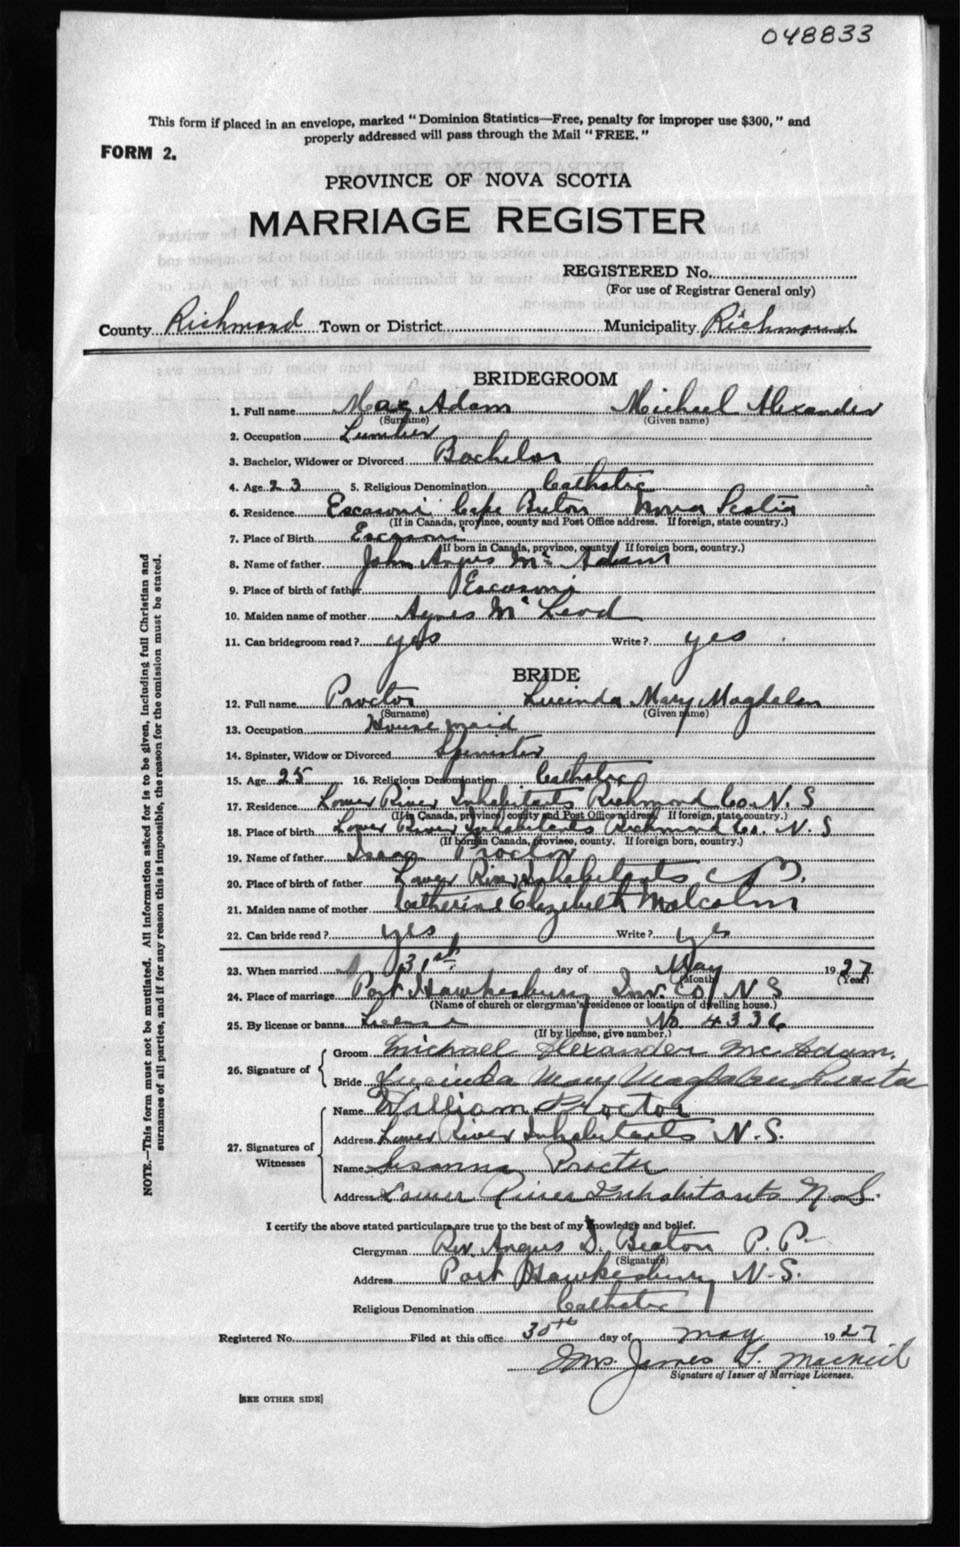 048833
This form if placed in an envelope, marked "Dominion Statistics—Free, penalty for improper use $300," and
properly addressed will pass through the Mail "FREE."
FORM 2.
PROVINCE OF NOVA SCOTIA
MARRIAGE REGISTER
REGISTERED No.
(For use of Registrar General only)
County Richmond Town or District Municipality Richmond
BRIDEGROOM
1. Full name Mac Adam Michael Alexander
(Surname) (Given name)
2. Occupation
3. Bachelor, Widower or Divorced Bachelor
4. Age 23 5. Religious Denomination Catholic
6. Residence Escasoni Cape Breton Nova Scotia
(If in Canada, province, county and Post Office address. If foreign, state country.)
7. Place of Birth Escasoni
(If born in Canada, province, county. If foreign born, country.)
8. Name of father John Angus Mc Adam
9. Place of birth of father Escasoni
10. Maiden name of mother Agnes Mc Leod
11. Can bridegroom read? yes Write? yes
BRIDE
12. Full name Proctor Lucinda Mary Magdalen
(Surname) (Given name)
13. Occupation House maid
14. Spinster, Widow or Divorced Spinster
15. Age 25 16. Religious Denomination Catholic
17. Residence Lower River Inhabitants Richmond Co. N.S
(If in Canada, province, county and Post Office address. If foreign, state country.)
18. Place of birth Lower River Inhabitants Richmond Co. N.S
(If born in Canada, province, county. If foreign born, country.)
19. Name of father Isaac Proctor
20. Place of birth of father Lower River Inhabitants
21. Maiden name of mother Catherine Elizibeth Malcolm
22. Can bride read? yes Write? yes
23. When married 31st day of May 1927
(Month) (Year)
24. Place of marriage Port Hawkesbury Inv. Co. N S
(Name of church or clergyman's residence or location of dwelling house.)
25. By license or banns License No. 4336
(If by license, give number.)
26. Signature of
Groom Michael Alexander McAdam.
Bride Lucinda Mary Magdalen Proctor
27. Signatures of Witnesses
Name William Proctor
Address Lower River Inhabitants N.S.
Name Susanna Proctor
Address Lower River Inhabitants N.S.
I certify the above stated particulars are true to the best of my knowledge and belief.
Clergyman Rev. Angus D. Beaton P.P.
(Signature)
Address Port Hawkesbury N.S.
Religious Denomination Catholic
Registered No. Filed at this office 30th day of May 1927
Mrs James G. MacNeil
Signature of Issuer of Marriage Licenses.
[SEE OTHER SIDE]
NOTE.—This form must not be mutilated. All information asked for is to be given, including full Christian and
surnames of all parties, and if for any reason this is impossible, the reason for the omission must be stated.